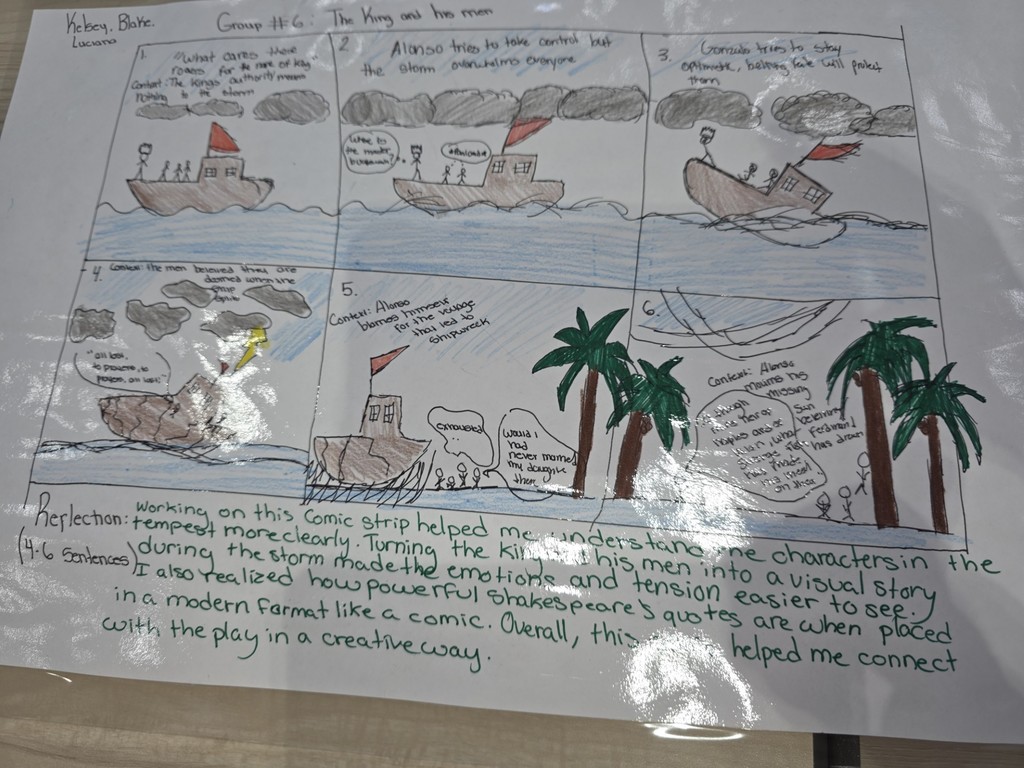 Kelsey, Blake,
Luciano
Group #6: The King and his men
1.
"What cares these
roarers for the name of King
Context: The kings authority means
nothing to the storm
2.
Alonso tries to take control but
the storm overwhelms everyone
3. Gonzalo tries to stay
optimistic, beliving fate will protect
them
4. Context: The men beleved they are
doomed when the
ship
splits
"all lost,
to prayers, to
prayers, all lost!
5.
Context: Alonso
blames himself
for the voyage
that led to
shipwreck
exhausted
Would I
had
never married
my daughter
there
6.
Context: Alonso
mourns his
missing
Sun
beleiving
Ferdinand
has drown
O though
mine heir of
naples and of
Milan, what
strange fish
hath made
his meal
on thee
Reflection:
(4-6 Sentences)
Working on this Comic strip helped me understand the characters in the
tempest more clearly. Turning the king his men into a visual story
during the storm made the emotions and tension easier to see.
I also realized how powerful Shakespeare's quotes are when placed
in a modern format like a comic. Overall, this helped me connect
with the play in a creative way.